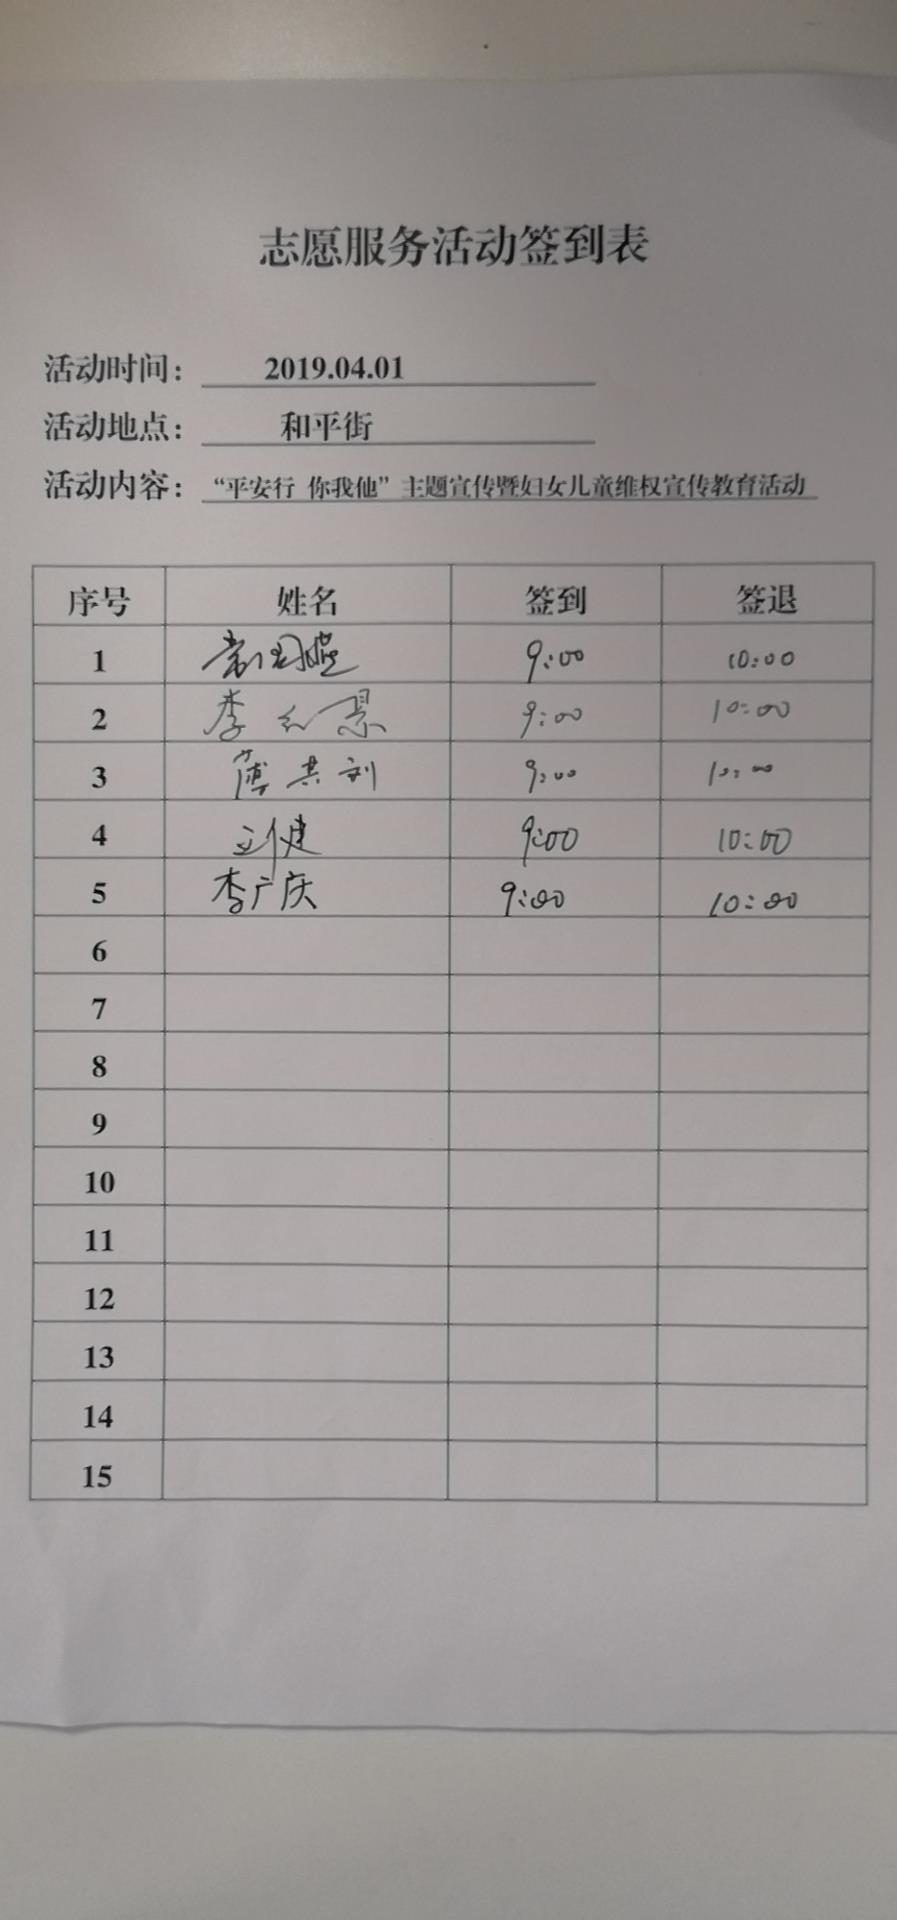 志愿服务活动签到表
活动时间： 2019.04.01
活动地点： 和平街
活动内容： “平安行 你我他”主题宣传暨妇女儿童维权宣传教育活动
序号 姓名 签到 签退
1 9:00 10:00
2 李红景 9:00 10:00
3 薄其刘 9:00 10:00
4 9:00 10:00
5 李广庆 9:00 10:00
6
7
8
9
10
11
12
13
14
15